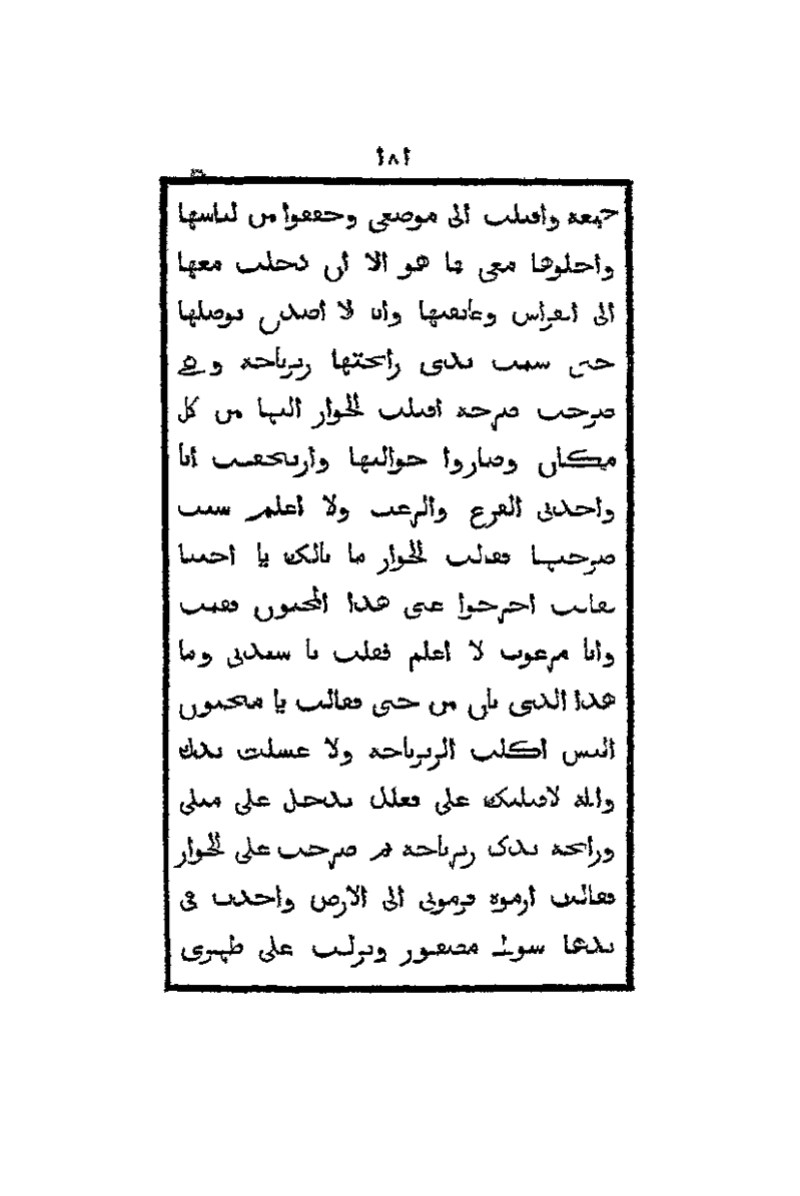 ١٨١
جميعه واقبلت الى موضعي وخففوا من لباسها
واخلوها معي فما هو الا ان دخلت معها
الى الفراش وعانقتها وانا لا اصدق بوصلها
حتى شمت يدى رائحتها زيرباجة وهي
صرخت صرخة اقبلت الجوار اليها من كل
مكان وصاروا حواليها وارتجفت انا
واخذني الفزع والرعب ولا اعلم سبب
صرخها فقالت الجوار ما بالك يا اختنا
فقالت اخرجوا عني هذا المجنون فقمت
وانا مرعوب لا اعلم فقلت يا سيدتي وما
هذا الذي بان من جنى فقالت يا مجنون
اليس اكلت الزيرباجة ولا غسلت يدك
والله لاقبلنك على فعلك يدخل على مثلي
ورائحة يدك زيرباجة ثم صرخت على الجوار
فقالت ارموه فرموني الى الارض واخذت في
يدها سوط مضفور ونزلت على ظهري